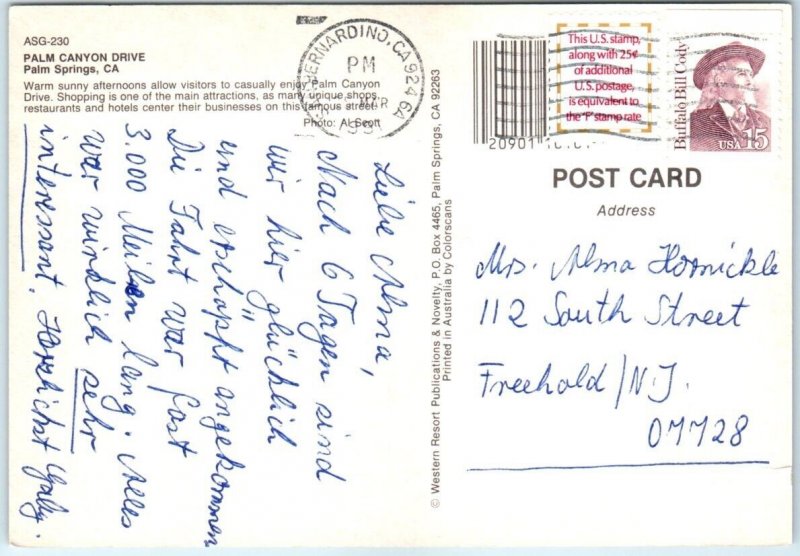 ASG-230
PALM CANYON DRIVE
Palm Springs, CA
Warm sunny afternoons allow visitors to casually enjoy Palm Canyon
Drive. Shopping is one of the main attractions, as many unique shops,
restaurants and hotels center their businesses on this famous street.
Photo: Al Scott
BERNARDINO, CA 924
PM
Liebe Alma,
Nach 6 Tagen sind
wir hier glücklich
und erschöpft angekommen
Die Fahrt war fast
3.000 Meilen lang. Alles
war wirklich sehr
interessant. Herzlichst Gaby.
© Western Resort Publications & Novelty, P.O. Box 4465, Palm Springs, CA 92263
Printed in Australia by Colorscans
20901
This U.S. stamp,
along with 25¢
of additional
U.S. postage,
is equivalent to
the "F" stamp rate
Buffalo Bill Cody
USA 15
POST CARD
Address
Mrs. Alma Hornickle
112 South Street
Freehold / N.J.
07728